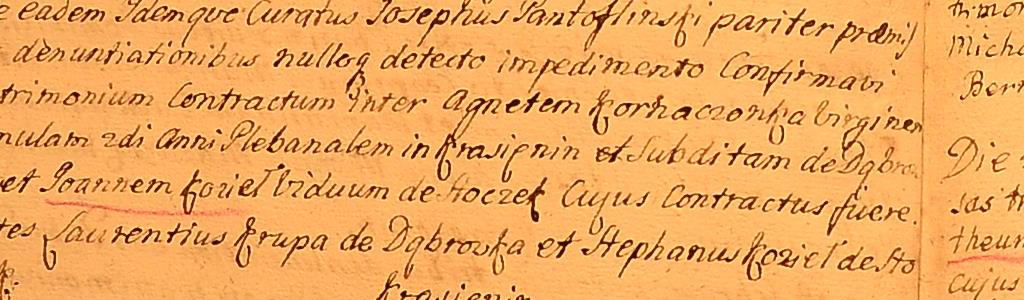 eadem Idemqve Curatus Josephus Pantoflinski pariter præmis
denuntiationibus nulloq detecto impedimento Confirmavi
trimonium Contractum inter Agnetem Korhaczonka Virginem
mulam 2di Anni Plebanalem in Krasienin et Subditam de Dąbro
et Joannem Kozieł Viduum de Stoczek Cujus Contractus fuere
tes Laurentius Krupa de Dąbrowka et Stephanus Kozieł de Sto
Krasienin
trimon
Micha
Bert
Die
sas tr
theum
cujus